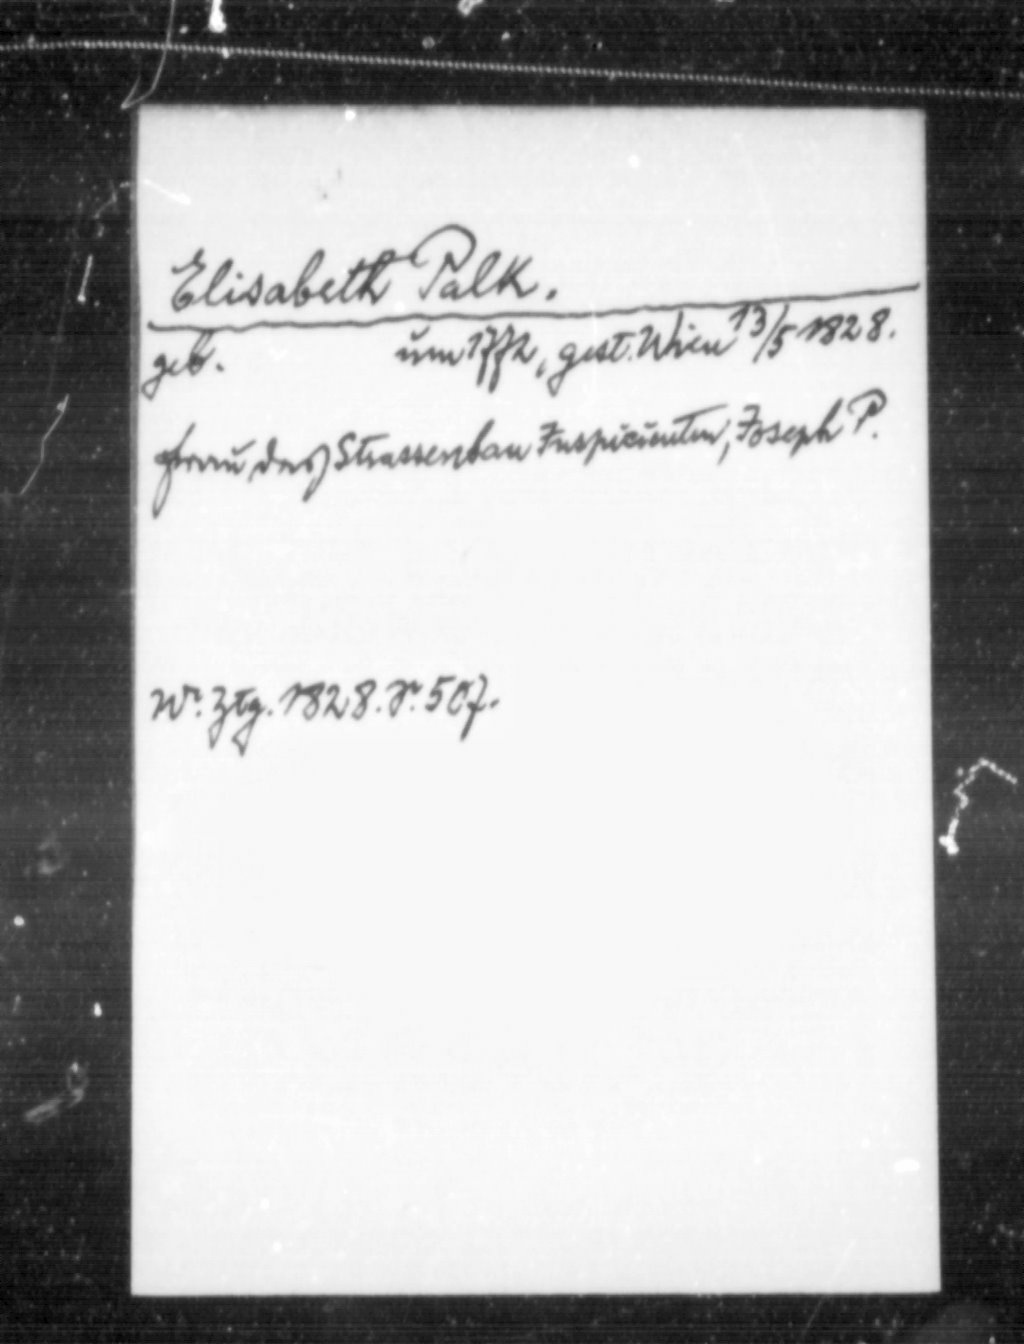 Elisabeth Palk.
geb. um 1772, gest. Wien 13/5 1828.
Frau des Strassenbau Inspicienten, Joseph P.
Wr. Ztg. 1828. S. 507.